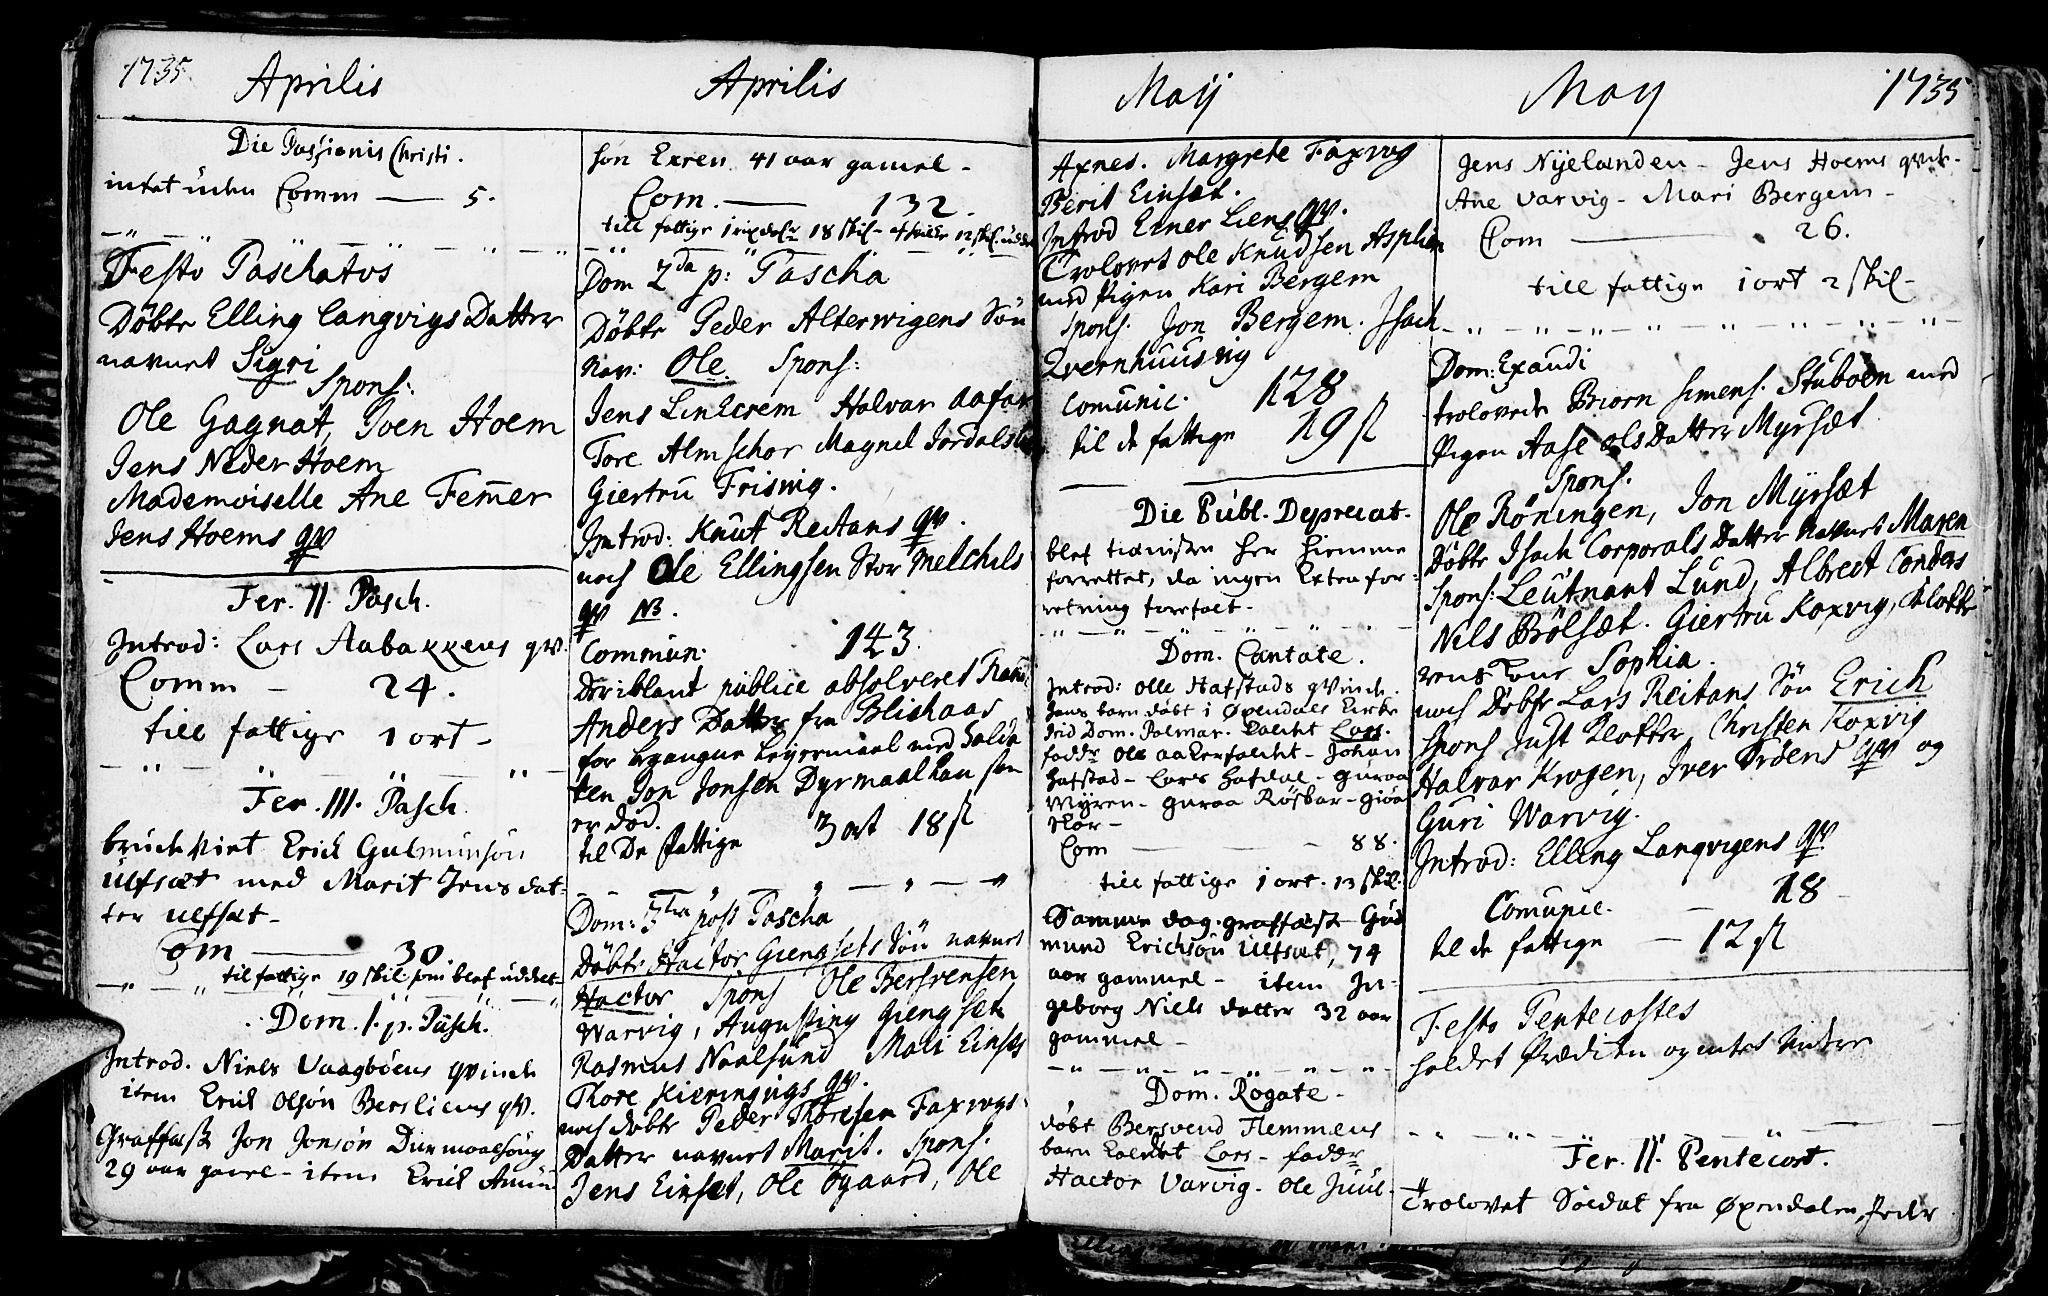 1735 Aprilis
Die Passionis Christi.
intet uden Comm — 5.
Festo Paschatos
Døbte Elling Langvigs Datter
navnet Sigri
Spons:
Ole Gagnat, Iven Hoem
Jens Neder Hoem
Mademoiselle Ane Femer
Jens Hoems qv
Fer. II. Pasch.
Introd: Lars Aabakkens qv.
Comm — 24.
till fattige 1 ort —
Fer. III. Pasch.
brudeviet Erick Gulmunsøn
Ulfsæt med Marit Jens dat-
ter Ulfsæt —
Com — 30.
til fattige 19 skil som blef uddeel
Dom. 1. p. Pasch.
Introd. Niels Vaagbøens qvinde
item Erick Olsøn Bersliens qv.
Graffæst Jon Jonsøn Durmaalhoug
29 aar gamel — item Erick Amun
Aprilis
søn Exren 41 aar gamel —
Com. — 132.
till fattige 1 rixdaler 18 skil
Dom 2da p: Pascha
Døbte Peder Alterwigens Søn
Nav: Ole. Spons:
Jens Linkrem Halvar Aafar
Tore Almschor Magnel Jordalsli
Giertru Frisvig.
Introd: Knut Reitans qv.
noch Ole Ellingsen Stor Melchils
qv NB.
Commun: 143
Der iblant publice absolveret
Anders Datter fra Blichaas
for begangne Leyermaal med Solda
ten Jon Jonsen Dyrmaalhau som
er død.
til De Fattige 3 ort 18 s
Dom: 3tia post Pascha
Døbte Hactor Giengsets Søn navnet
Hactor Spons Ole Bersvensen
Warvig, Augustiny Giengset
Rasmus Naalsund Mari Einset
Thore Kieringvigs qv.
noch døbte Peder Thoresen Faxvigs
Datter navnet Marit. Spons.
Jens Einset, Ole Øgaard, Ole
Maij
Axnes. Margrete Faxvig
Berit Einsæt.
Introd Einer Liens qv.
Trolovet Ole Knudsen Asphiem
med Pigen Kari Bergem
Spons. Jon Bergem. Isach
Qvernhuusvig
Comunic. 128
til de fattige 19 s
Die Publ. Deprecat.
blef tienisten her hiemme
forrettet, da ingen Exten for-
retning forefalt —
Dom. Cantate.
Introd: Olle Hafstads qvinde.
Jens barn døbt i Øxendals kirke
Dom. Palmar. kaldet Lars.
faddr Ole Aakerfalcht — Johan
Hafstad — Lars Hafdal — Guraa
Myren — Guraa Røsbar — Giøa
Skor —
Com — 88.
till fattige 1 ort. 13 skil.
Samme dag graffæst Gud
mund Ericksøn Ulfsæt, 74
aar gammel — item In-
geborg Niels datter 32 aar
gammel —
Dom. Rogate —
døbt Bersvend Flemmens
barn kaldet Lars — faddr
Hactor Varvig — Ole Juul —
May 1735
Jens Nyelænden — Jens Hoems qvin-
Ane Varvig — Mari Bergem —
Com — 26.
till fattige 1 ort 2 skil —
Dom: Exaudi
trolovede Biørn Simens. Stuboen med
Pigen Aase Ols Datter Myrsæt
Spons.
Ole Røningen, Jon Myrsæt
Døbte Isach Corporals Datter navnet Maren
Spons: Leutnant Lund, Albrect Conders
Nils Brølsæt. Giertru Koxvig, Klokke
rens Sophia.
noch Døbte Lars Reitans Søn Erich
Spons Just Klokker, Christen Koxvig
Halvar Krogen, Iver Ordens qv og
Guri Warvig.
Introd: Elling Langvigens qv
Comunic. — 18
til de fattige — 12 s
Festo Pentecostes
holdet Prædiken og intet videre
Fer. II. Pentecost.
Trolovet Soldat fra Øxendalen Peder